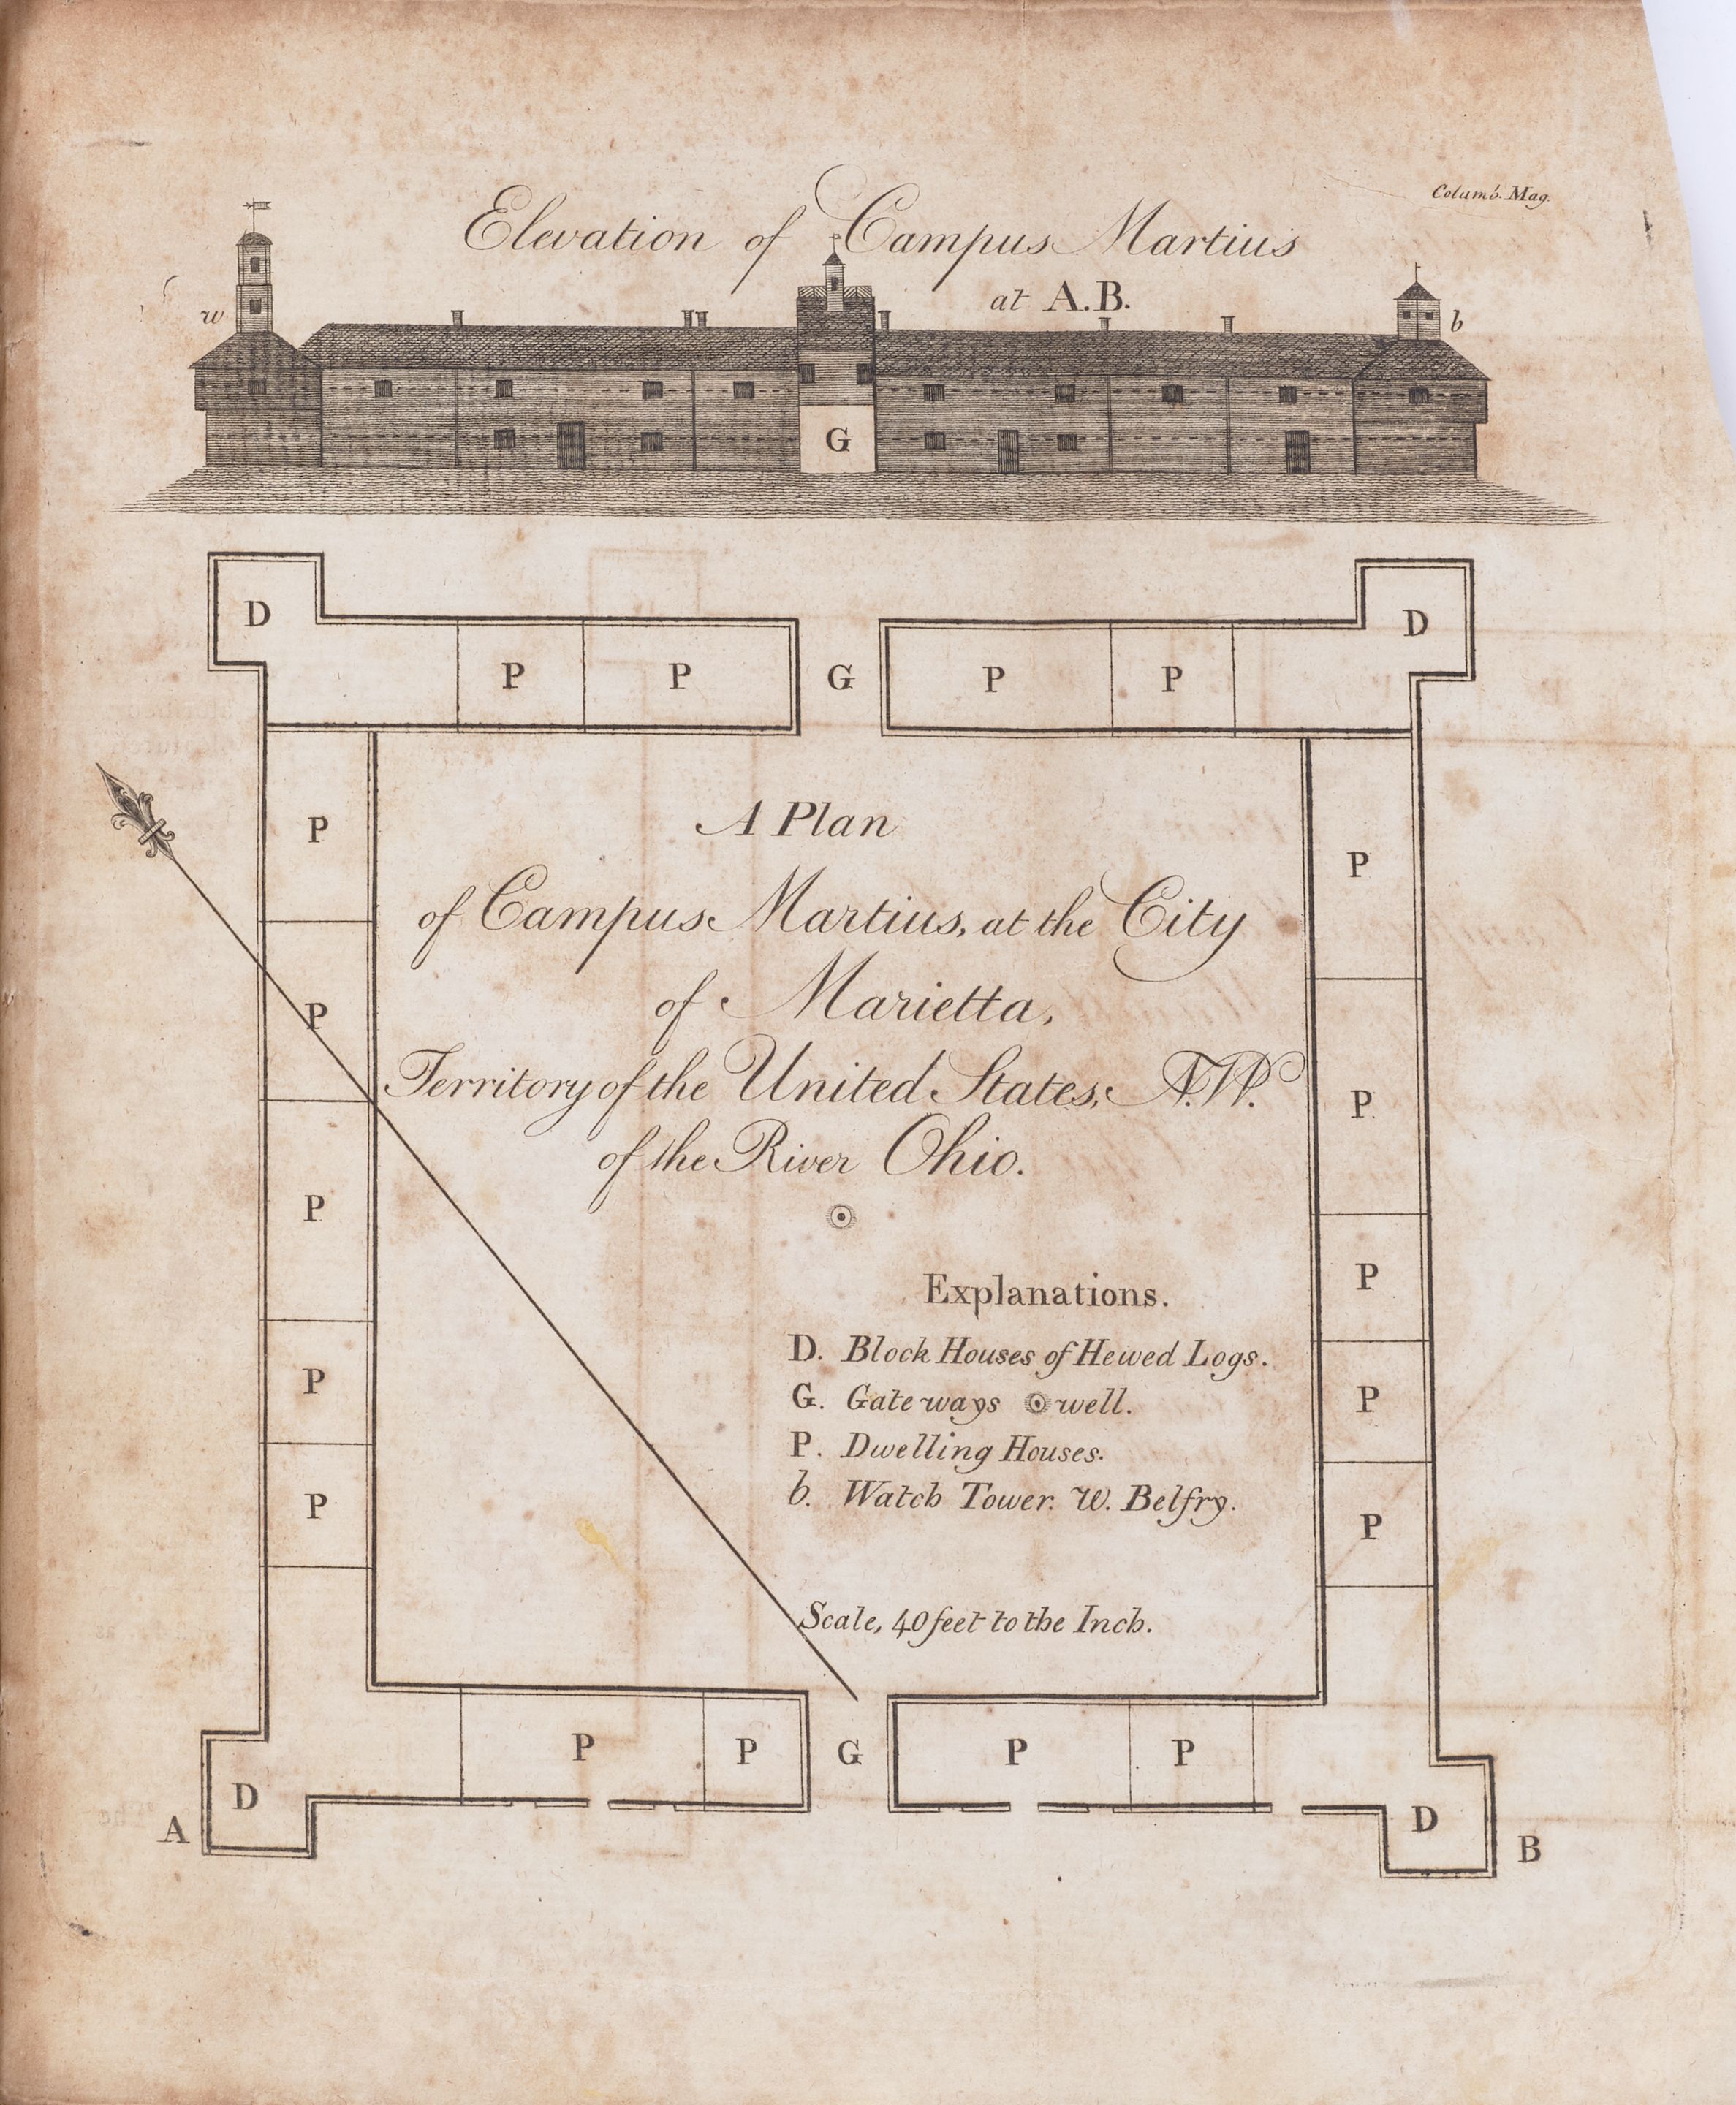 Columb. Mag.
Elevation of Campus Martius
at A.B.
w
b
G
D
D
P
P
G
P
P
P
P
P
P
P
P
P
P
P
P
A Plan
of Campus Martius, at the City
of Marietta,
Territory of the United States, N.W.
of the River Ohio.
Explanations.
D. Block Houses of Hewed Logs.
G. Gateways well.
P. Dwelling Houses.
b. Watch Tower. W. Belfry.
Scale, 40 feet to the Inch.
P
P
G
P
P
D
D
A
B